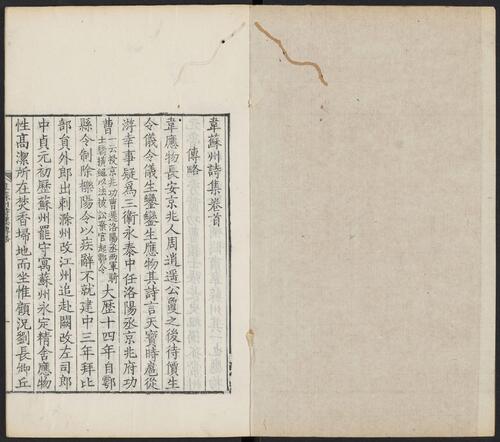 韋蘇州詩集卷首
傳略
韋應物長安京兆人周逍遥公敻之後待價生
令儀令儀生鑾鑾生應物其詩言天寶時扈從
游幸事疑爲三衛永泰中任洛陽丞京兆府功
曹一云投京兆功曹遷洛陽丞兩軍騎
士驕橫繩以法被訟棄官起鄠令大歷十四年自鄠
縣令制除櫟陽令以疾辭不就建中三年拜比
部員外郎出刺滁州改江州追赴闕改左司郎
中貞元初歷蘇州罷守寓蘇州永定精舍應物
性高潔所在焚香埽地而坐惟顧況劉長卿丘